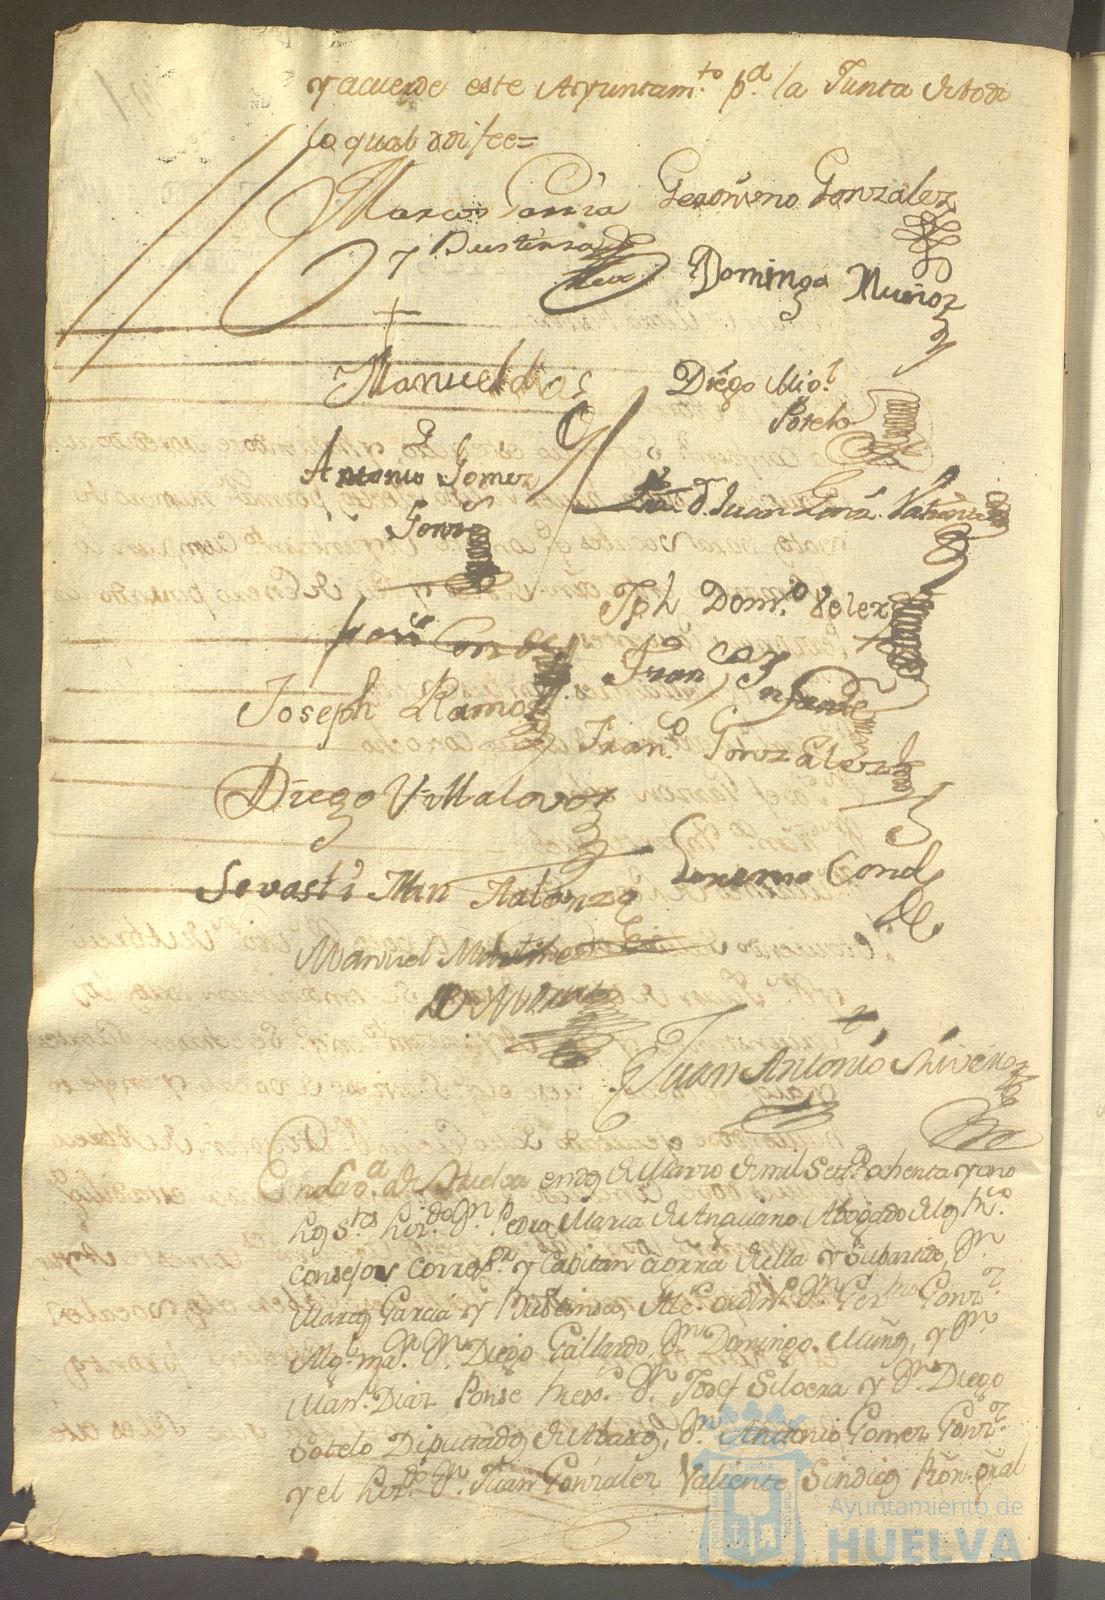 y acuerde este Ayuntam.to p.a la Junta de todo
lo qual doi fee=
Marcos Garcia Geronimo Gonzalez
y Bustinza
Domingo Muñoz
Manuel dias
Diego Mig.l
Sotelo
Antonio Gomez
Gonz
D.n Juan Gonz. Valiente
Jph Dom.o Velez
Conde
Fran.co Infante
Joseph Ramos
Fran.co Gonzalez
Diego Villalovos
Sevasti Mrn Malonzo
Lorenzo Conde
Manuel Martinez
Juan Antonio
En la v.a de Huelva en dos de Marzo de mil Set.s ochenta y uno
los s.res liz.do D.n Pedro Maria de Anguiano Abogado de los R.s
consejos, Correg.or y Capitan a guerra de ella y su Partido, D.n
Marcos Garcia y Bustinsa, Alg.l D.n Ger.mo Gonz.z
Alg.l ma.or D.n Diego Gallardo, D.n Domingo Muños, y D.n
Man.l Diaz Ponse D.n Josef Silvera y D.n Diego
Sotelo Diputtados de Abasto, D.n Anttonio Gomez Gonz.z
y el liz.do D.n Juan Gonzalez Valiente Sindico
Ayuntamiento de
HUELVA